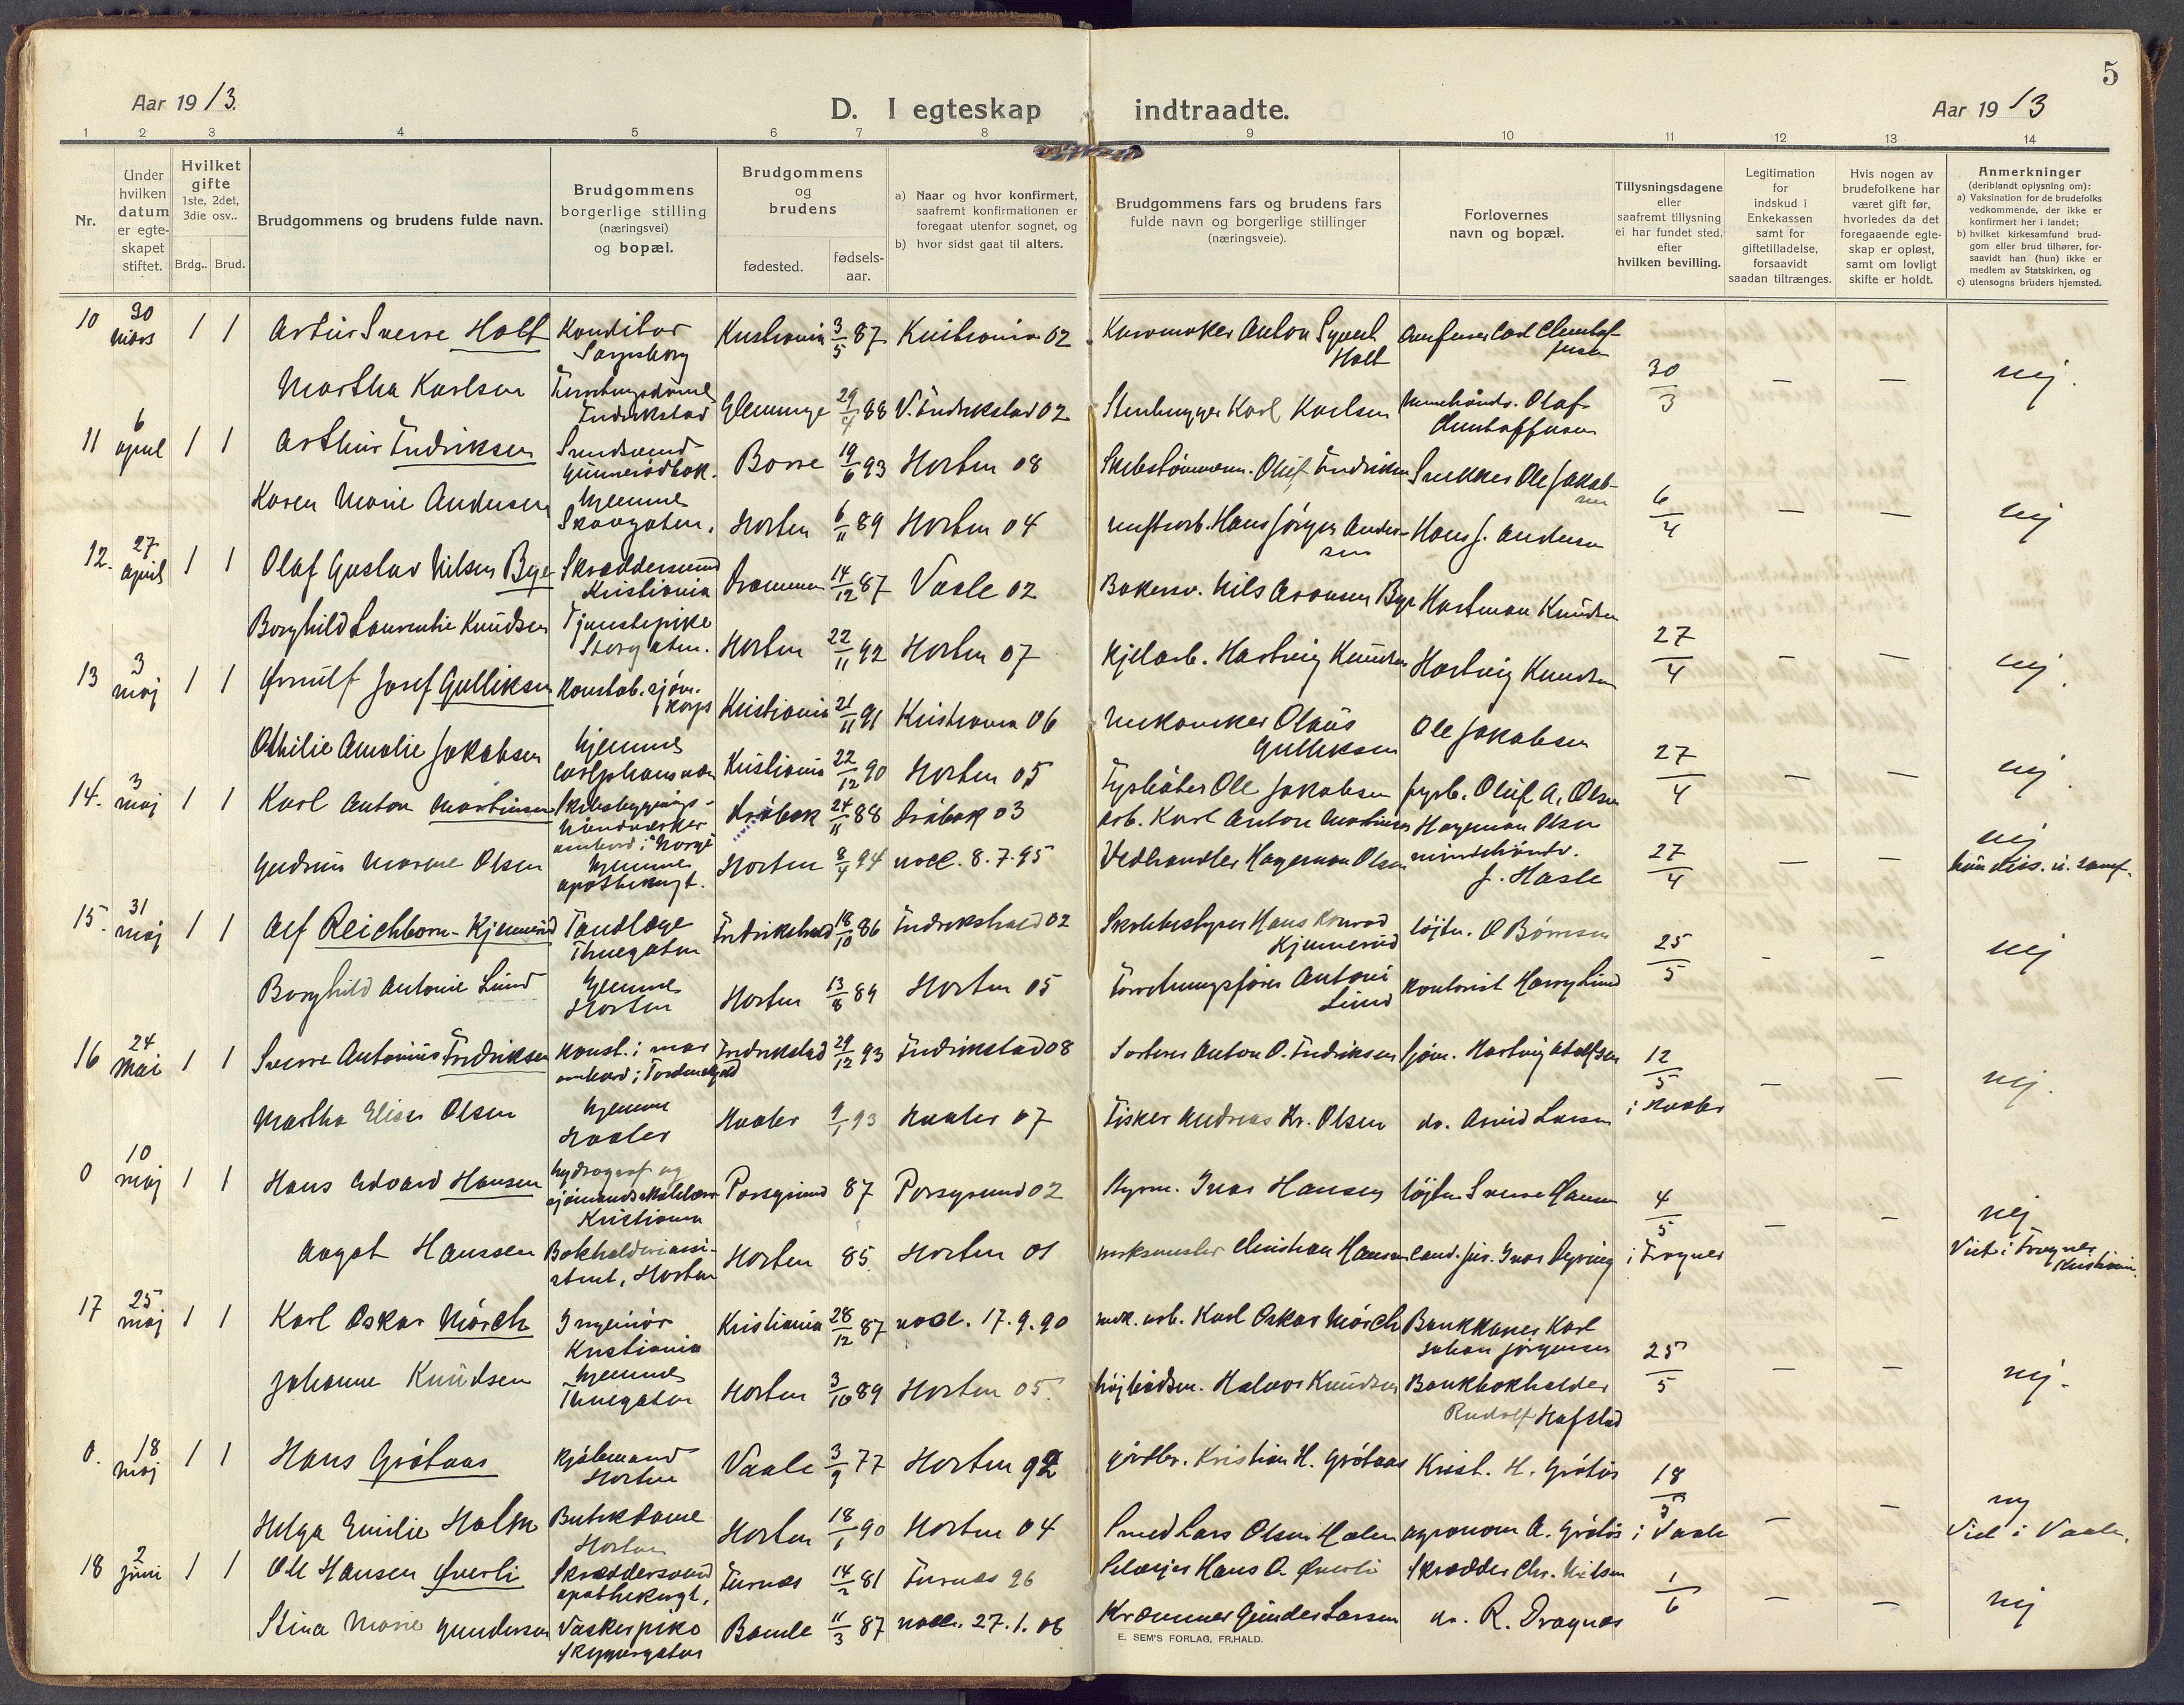 5
Aar 1913.
D. I egteskap indtraadte.
Aar 1913
1 2 3 4 5 6 7 8 9 10 11 12 13 14
Nr.
Under hvilken datum er egte-skapet stiftet.
Hvilket gifte 1ste, 2det, 3die osv..
Brdg.. Brud.
Brudgommens og brudens fulde navn.
Brudgommens borgerlige stilling (næringsvei) og bopæl.
Brudgommens og brudens
fødested.
fødsels-aar.
a) Naar og hvor konfirmert, saafremt konfirmationen er foregaat utenfor sognet, og
b) hvor sidst gaat til alters.
Brudgommens fars og brudens fars fulde navn og borgerlige stillinger (næringsveie).
Forlovernes navn og bopæl.
Tillysningsdagene eller saafremt tillysning ei har fundet sted, efter hvilken bevilling.
Legitimation for indskud i Enkekassen samt for giftetilladelse, forsaavidt saadan tiltrænges.
Hvis nogen av brudefolkene har været gift før, hvorledes da det foregaaende egte-skap er opløst, samt om lovligt skifte er holdt.
Anmerkninger
(deriblandt oplysning om):
a) Vaksination for de brudefolks vedkommende, der ikke er konfirmert her i landet;
b) hvilket kirkesamfund brud-gom eller brud tilhører, for-saavidt han (hun) ikke er medlem av Statskirken, og
c) utensogns bruders hjemsted.
10 30 mars 1 1 Artur Sverre Holt Konditor Sarpsborg Kristiania 3/5 87 Kristiania 02 Kurvmaker Anton Syvert Holt
30/3 — — nej.
Martha Karlsen Fredrikstad Glemminge 29/4 88 V. Fredrikstad 02 Stenhugger Karl Karlsen Olaf
11 6 april 1 1 Arthur Fredriksen Borre 19/6 93 Horten 08 Oluf Fredriksen Snekker Ole Jakobsen
6/4 — — nej
Karen Marie Andersen hjemme Skovgaten. Horten 6/11 89 Horten 04 Hans Jørgen Andersen Hans J. Andersen
12. 27 april 1 1 Olaf Gustav Nilsen Bye Skræddersvend Kristiania Drammen 14/12 87 Vaale 02 Bakersv. Nils Aronsen Bye Hartman Knudsen
27/4 — — nej.
Borghild Laurentie Knudsen Tjenestepike Storgaten. Horten 22/11 92 Horten 07 Kjelarb. Hartvig Knudsen Hartvig Knudsen
13 3 maj 1 1 Ørnulf Josef Gulliksen Konstab. sjøm. korps Kristiania 21/11 91 Kristiania 06 Mekaniker Olaus Gulliksen Ole Jakobsen
27/4 — — nej.
Othilie Amalie Jakobsen hjemme Kristiania 22/12 90 Horten 05 Fyrbøter Ole Jakobsen fyrb. Oluf A. Olsen
14. 3 maj 1 1 Karl Anton Martinsen Skibsbyggnings-håndverker ombord i "Norge" Drøbak 24/11 88 Drøbak 03 arb. Karl Anton Martinsen Hageman Olsen
27/4 — — nej
Gudrun Marine Olsen hjemme apothekergt. Horten 8/4 94 vacc. 8.7.95 Vedhandler Hageman Olsen J. Hasle
hun diss. u. samf.
15. 31 maj 1 1 Alf Reichborn-Kjennerud Tandlæge Thuegaten Fredrikshald 18/10 86 Fredrikshald 02 Skolebestyrer Hans Konrad Kjennerud løjtn. O Børresen
25/5 - - nej
Borghild Antonie Lund hjemme Horten Horten 13/8 89 Horten 05 Forretningsfører Antoni Lund Kontorist Harry Lund
16 24 Mai 1 1 Sverre Antonius Fredriksen Konst. i mar ombord i Tordenskjold Fredrikstad 29/12 93 Fredrikstad 08 Sorterer Anton O. Fredriksen sjøm. Hartvig Adolfsen
12/5 i Hvaler — — nej.
Martha Elise Olsen hjemme Hvaler Hvaler 9/1 93 Hvaler 07 Fisker Andreas Kr. Olsen do. Arvid Larsen
0 10 maj 1 1 Hans Edvard Hansen hydrograf og sjømandsskolelærer Kristiania Porsgrund 87 Porsgrund 02 Styrm. Ivar Hansen løjtn. Sverre Hansen
4/5 i Frogner — — nej
Aagot Hanssen Bokholderassi-stent, Horten Horten 85. Horten 01 verksmester Christian Hansen cand. jur. Ivar Dyring
Viet i Frogner Kristiania.
17 25 maj 1 1 Karl Oskar Mørch Ingeniør Kristiania Kristiania 28/12 87 vacc. 17.9.90 mek. arb. Karl Oskar Mørch Bankkasser Karl Johan Jørgensen
25/5 — — nej.
Johanne Knudsen hjemme Thuegaten Horten 3/10 89 Horten 05. højbådsm. Halvor Knudsen Bankbokholder Rudolf Hafstad
0. 18 maj 1 1 Hans Grötaas Kjøbmand Horten Vaale 3/9 77 Horten 92 gårdbr. Kristian H. Grötaas Krist. H. Grötås
18/5 i Vaale — — nej
Helga Emilie Holm Butikdame Horten Horten 18/1 90 Horten 04 Smed Lars Olsen Holm agronom A. Grötås
Viet i Vaale.
18 2 juni 1 1 Ole Hansen Øverli Skræddersvend apothekergt. Furnes 14/2 81 Furnes 96 Selveier Hans O. Øverli Skrædder Chr. Nilsen
1/6 — — nej
Stina Marie Gundersen Vaskerpike Skippergaten Bamle 11/3 87 vacc. 27.1.06 Kræmmer Gunder Larsen do. R. Dragnes
E. SEM'S FORLAG, FR.HALD.